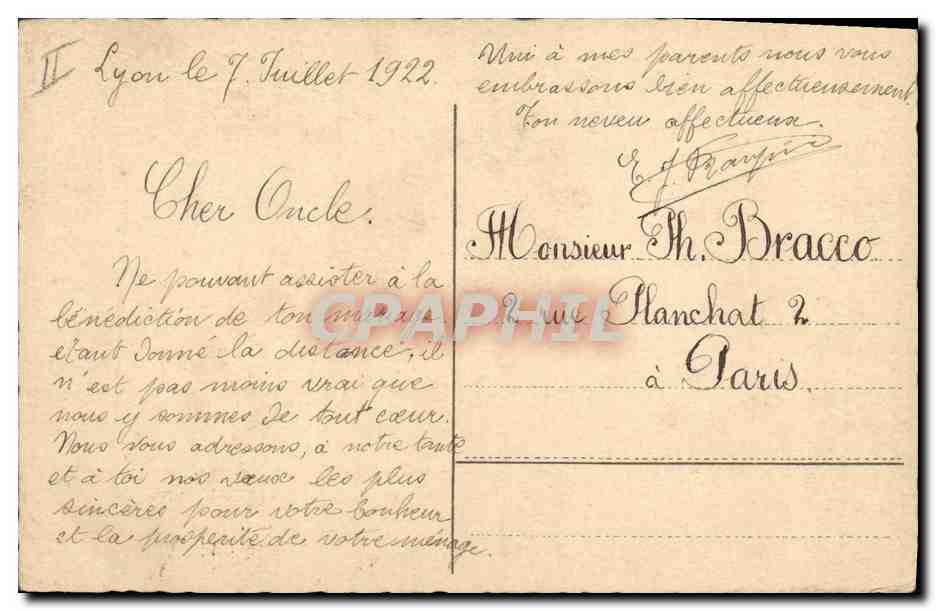 II
Lyon le 7. Juillet 1922.
Cher Oncle.
Ne pouvant assister à la
bénédiction de ton mariage
etant donné la distance, il
n'est pas moins vrai que
nous y sommes de tout cœur.
Nous vous adressons, à notre tante
et à toi nos vœux les plus
sincères pour votre bonheur
et la prospérité de votre ménage.
Uni à mes parents nous vous
embrassons bien affectueusement.
Ton neveu affectueux.
E. J.
Monsieur Th. Bracco
2 rue Planchat 2
à Paris.
CPAPHIL